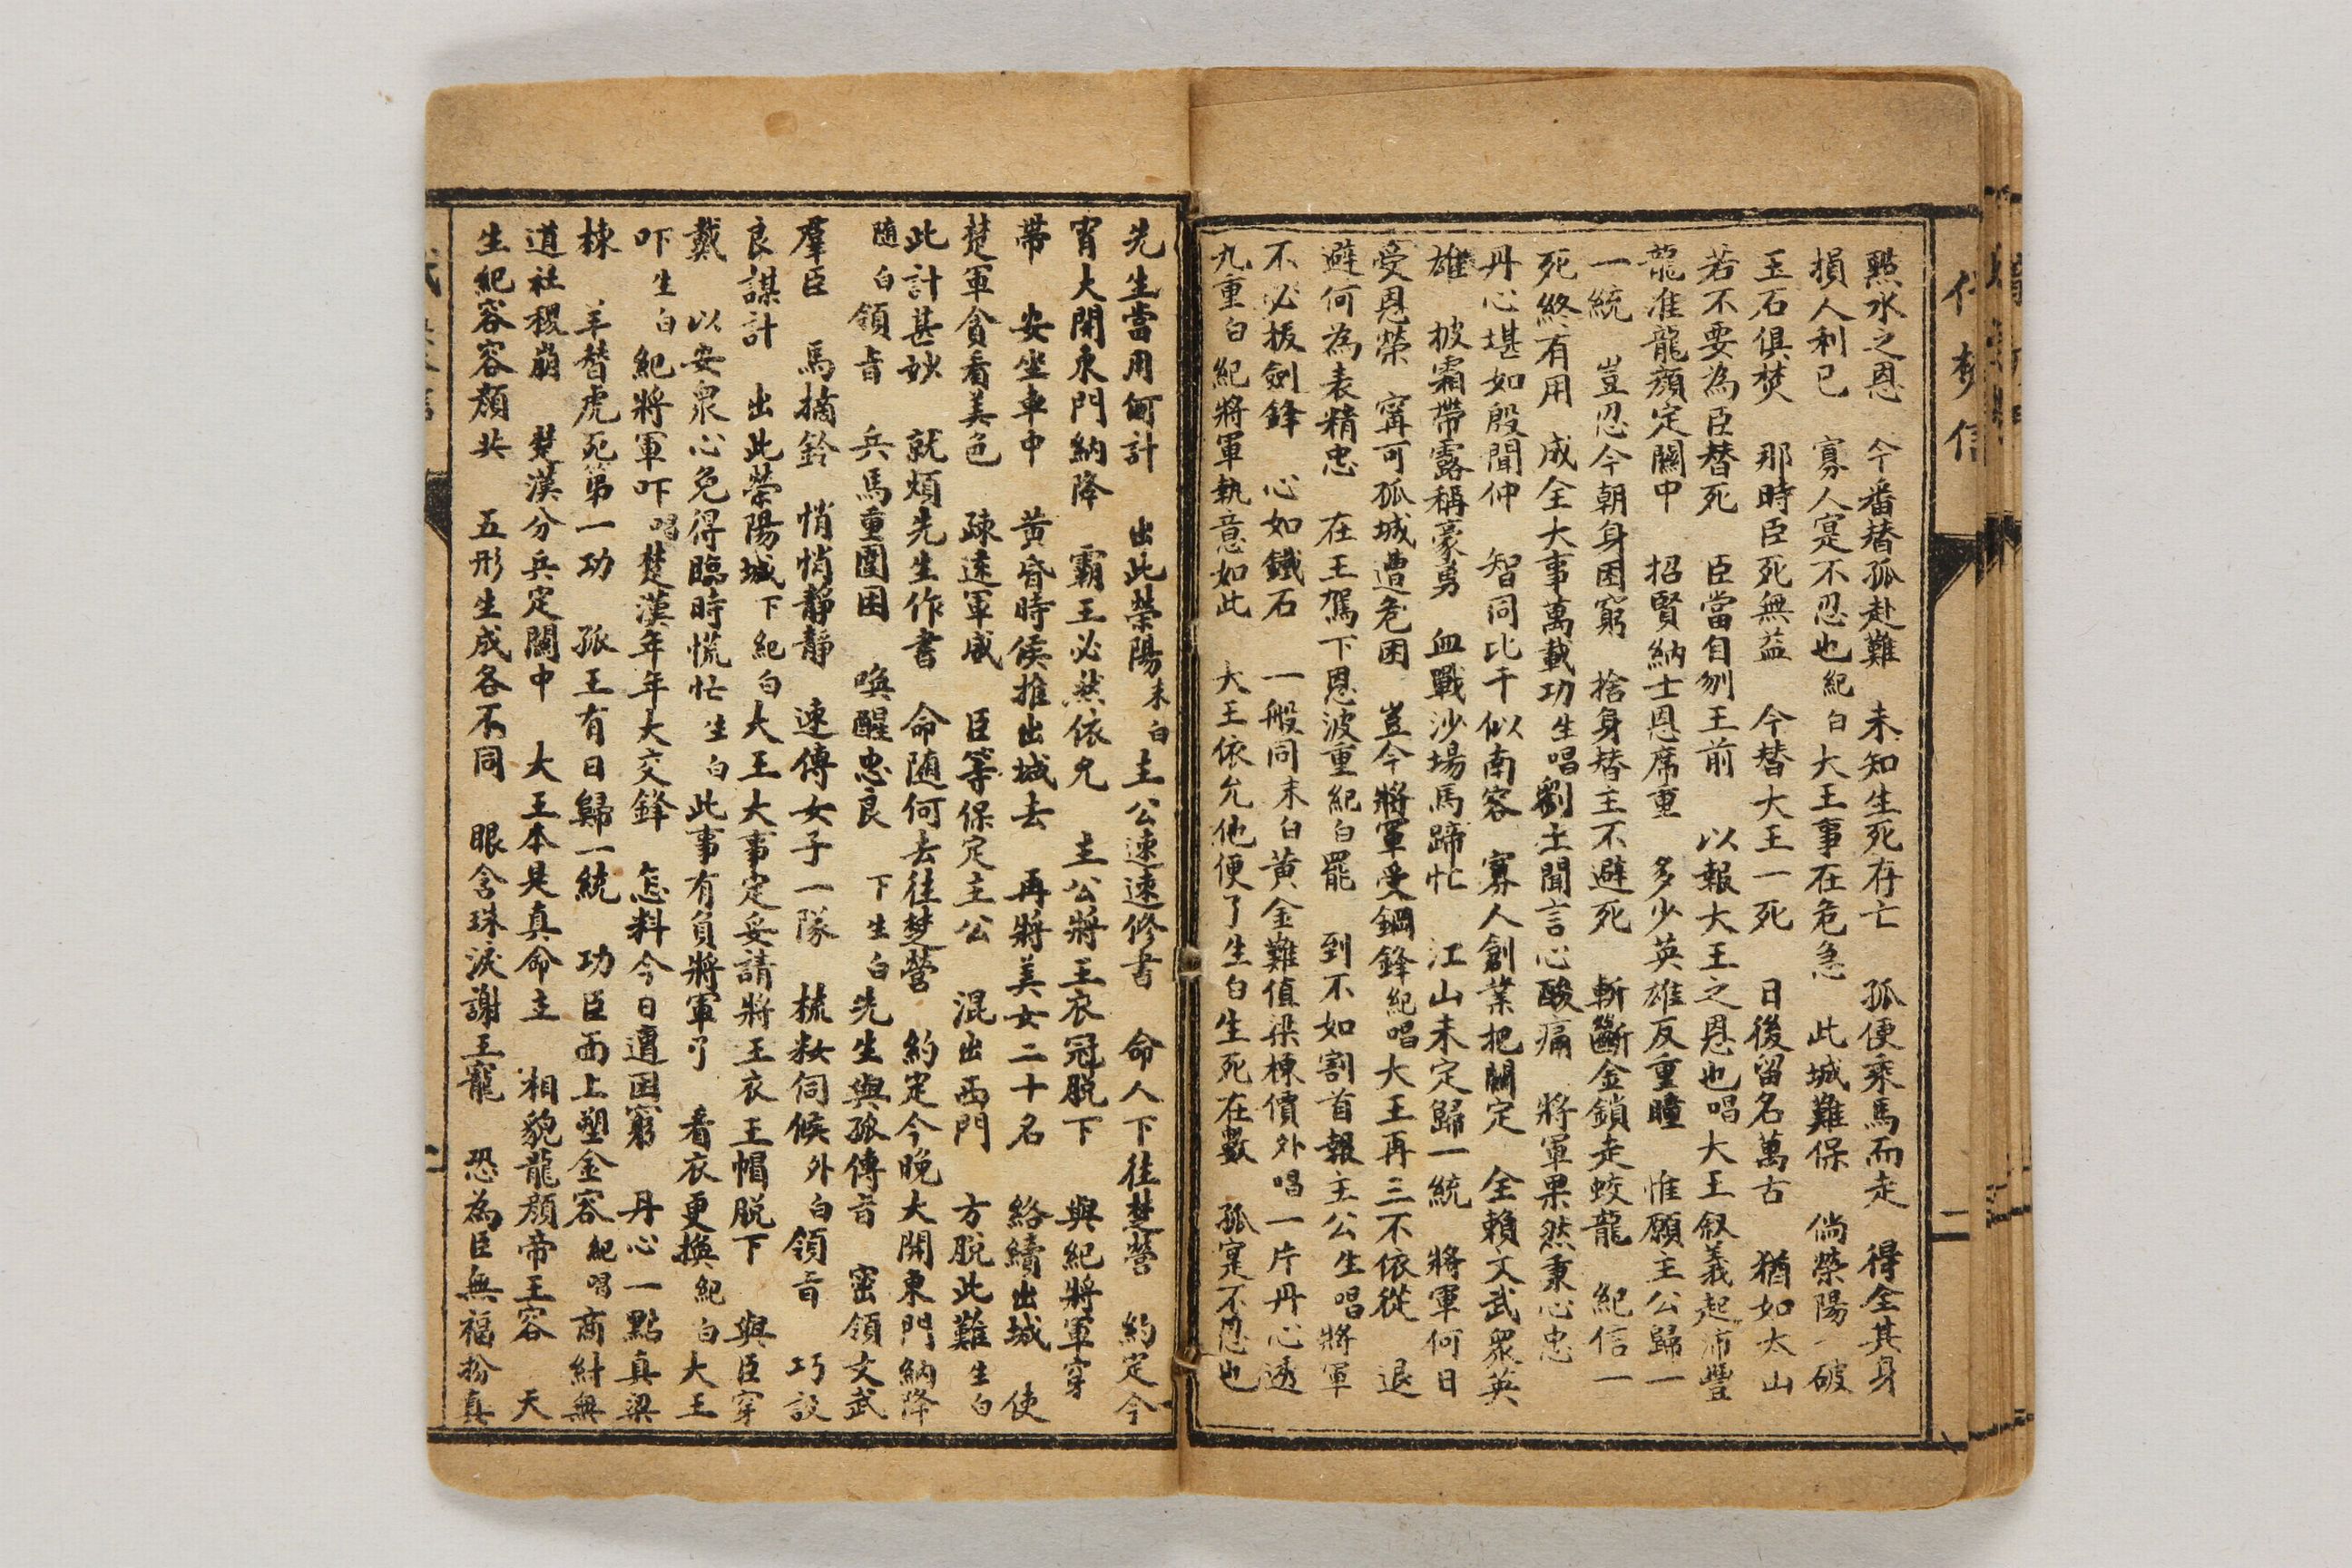 點水之恩　今番替孤赴難　未知生死存亡　孤便乘馬而走　得全其身
損人利己　寡人寔不忍也紀白大王事在危急　此城難保　倘榮陽一破
玉石俱焚　那時臣死無益　今替大王一死　日後留名萬古　猶如太山
若不要為臣替死　臣當自刎王前　以報大王之恩也唱大王叙義起沛豐
龍准龍顏定關中　招賢納士恩席重　多少英雄反重瞳　惟願主公歸一
一統　豈忍今朝身困窮　捨身替主不避死　斬斷金鎖走蛟龍　紀信一
死終有用　成全大事萬載功生唱劉主聞言心酸痛　將軍果然秉心忠
丹心堪如殷聞仲　智同比干似南容　寡人創業把關定　全賴文武眾英
雄　披霜帶露稱豪勇　血戰沙場馬蹄忙　江山未定歸一統　將軍何日
受恩榮　寗可孤城遭危困　豈今將軍受鋼鋒紀唱大王再三不依從　退
避何為表精忠　在王駕下恩波重紀白罷　到不如割首報主公生唱將軍
不必扳劍鋒　心如鐵石　一般同末白黃金難值梁棟價外唱一片丹心透
九重白紀將軍執意如此　大王依允他便了生白生死在數　孤寔不忍也
代楚信
二
先生當用何計　出此榮陽末白主公速速修書　命人下往楚營　約定今
宵大開東門納降　霸王必然依允　主公將王衣冠脱下　與紀將軍穿
帶　安坐車中　黃昏時候推出城去　再將美女二十名　絡續出城　使
楚軍貪看美色　疎遠軍威　臣等保定主公　混出西門　方脫此難生白
此計甚妙　就煩先生作書　命隨何去往楚營　約定今晚大開東門納降
隨白領旨　兵馬重圍困　喚醒忠良　下生白先生與孤傳旨　密領文武
羣臣　馬摘鈴　悄悄靜靜　速傳女子一隊　梳粧伺候外白領旨　巧設
良謀計　出此榮陽城下紀白大王大事定妥請將王衣王帽脱下　與臣穿
戴　以安衆心免得臨時慌忙生白此事有負將軍了　看衣更換紀白大王
吓生白紀將軍吓唱楚漢年年大交鋒　怎料今日遭困窮　丹心一點真梁
棟　羊替虎死第一功　孤王有日歸一統　功臣面上塑金容紀唱商紂無
道社稷崩　楚漢分兵定關中　大王本是真命主　相貌龍顏帝王容　天
生紀容容顏共　五形生成各不同　眼含珠淚謝王寵　恐為臣無福扮真